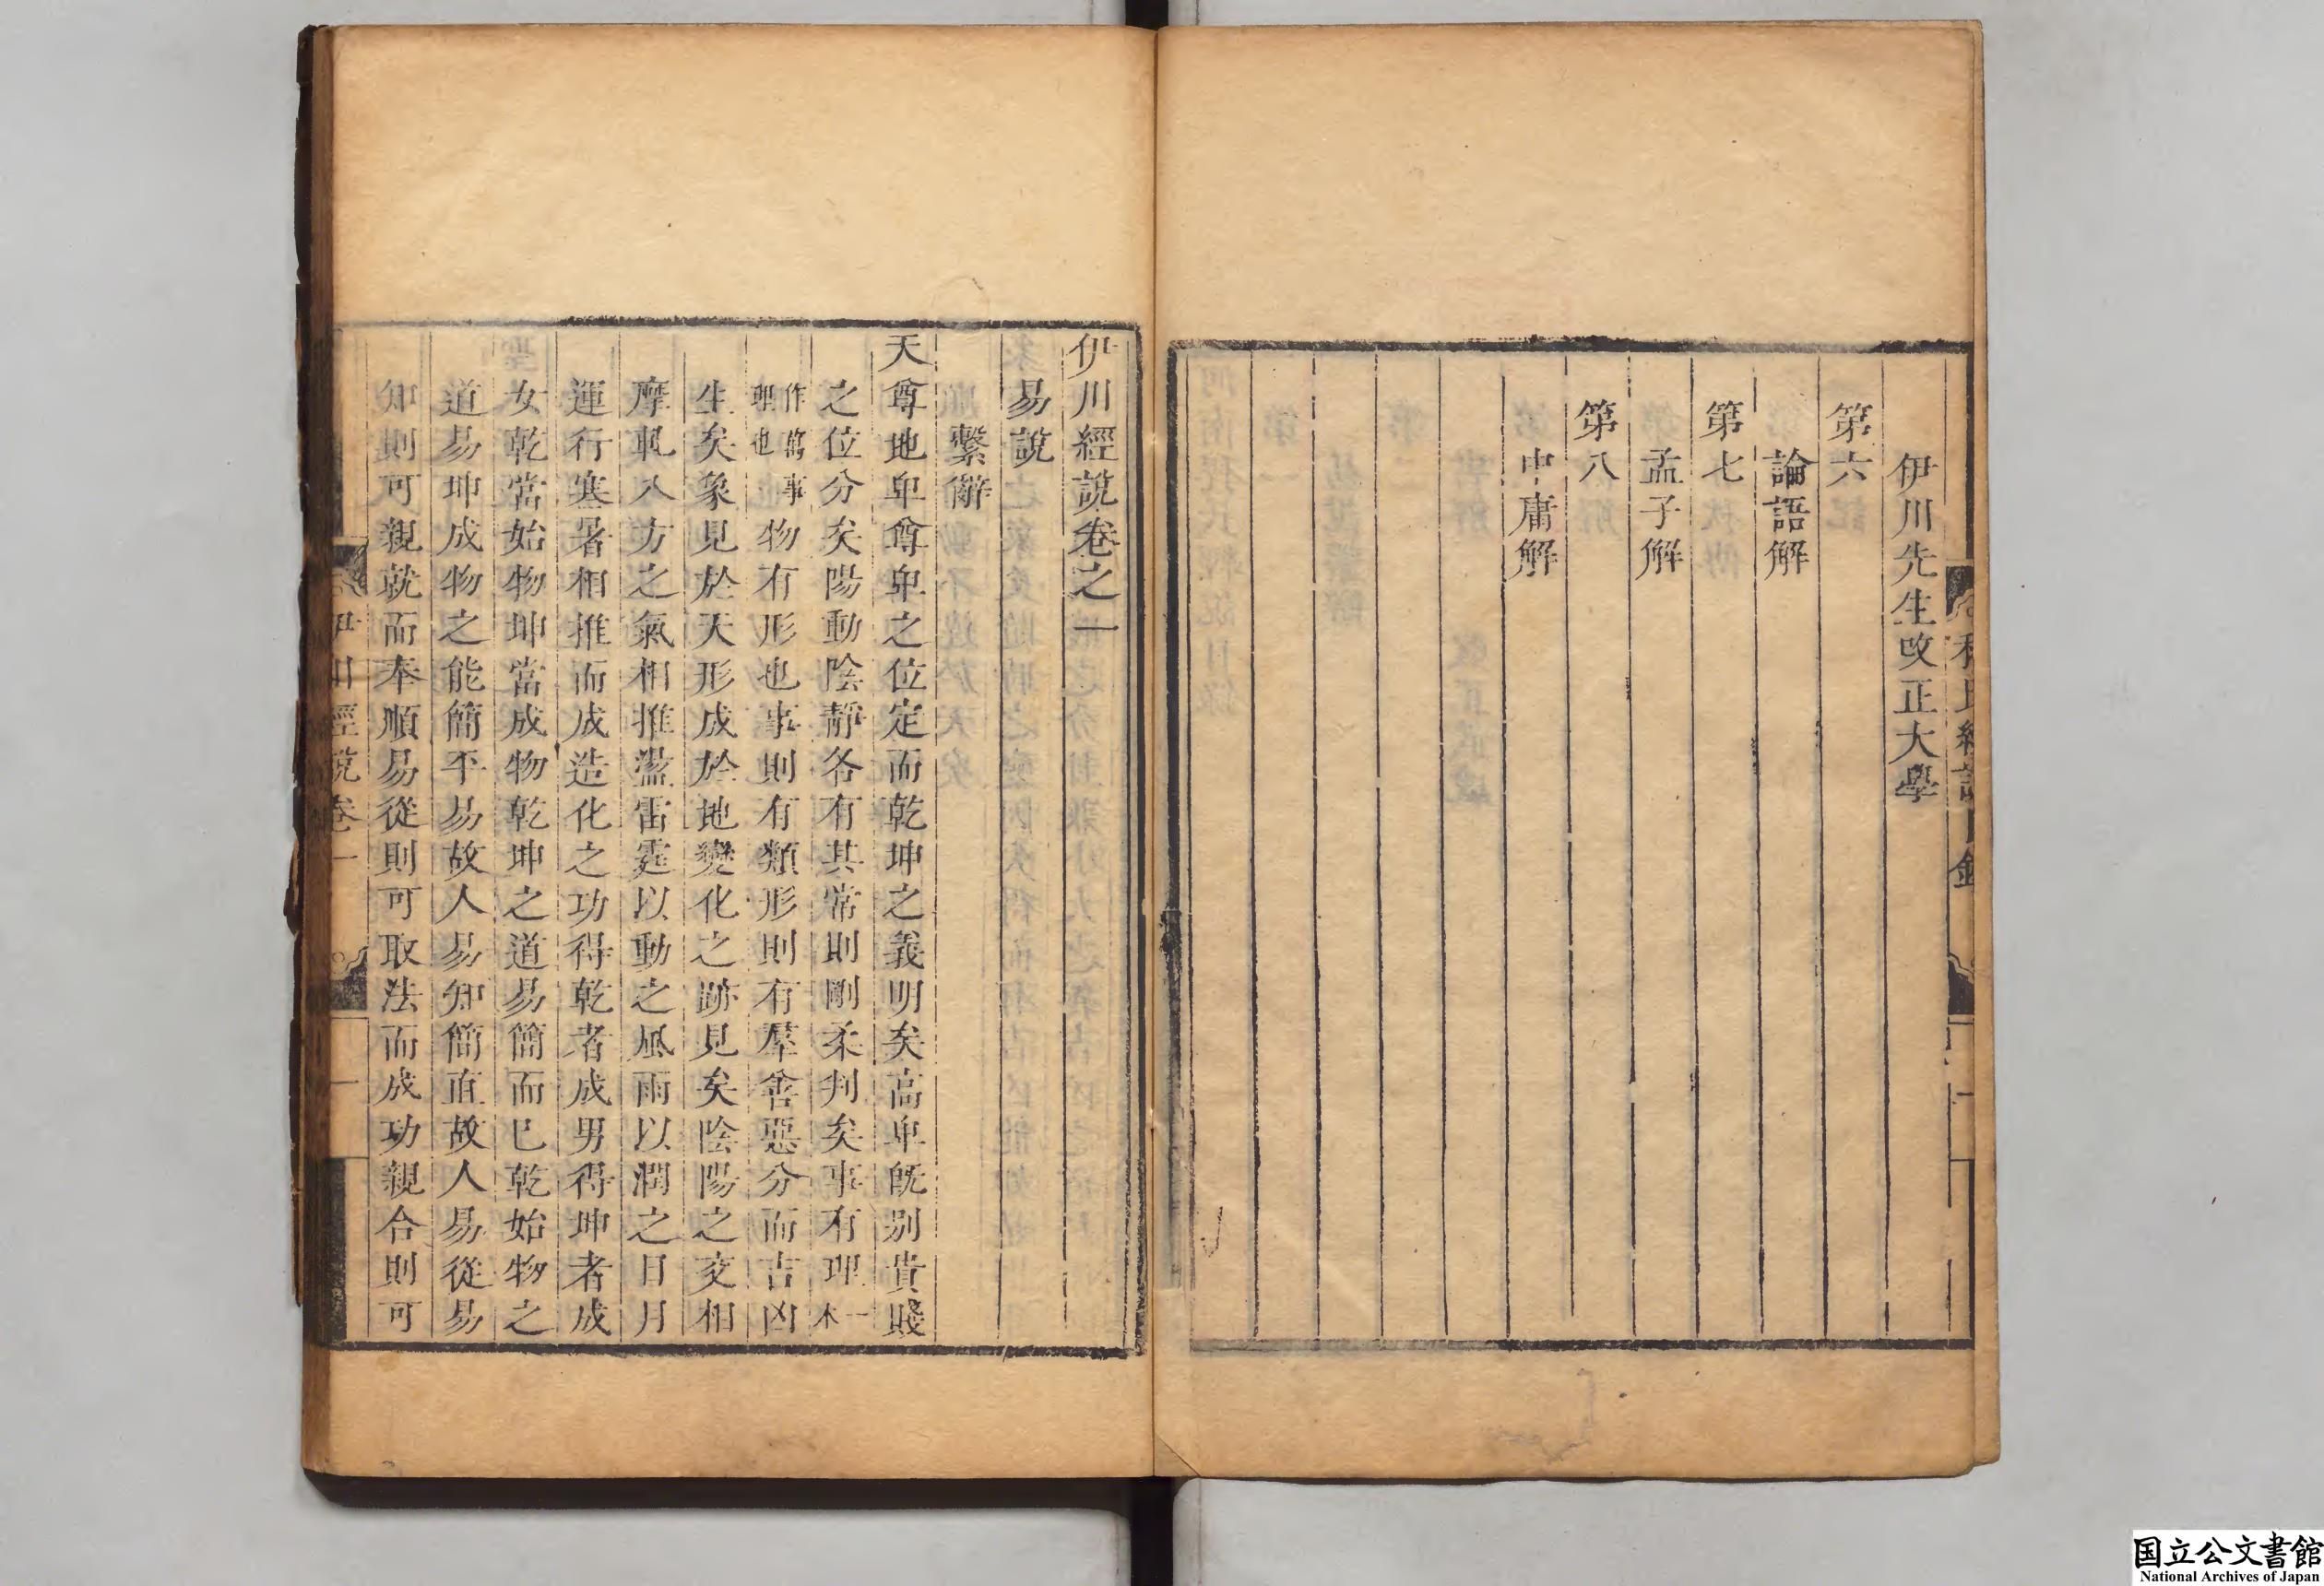 伊川先生改正大學
第六
論語解
第七
孟子解
第八
中庸解
伊川經說卷之一
易說
繫辭
天尊地卑尊卑之位定而乾坤之義明矣高卑旣别貴賤
之位分矣陽動陰靜各有其常則剛柔判矣事有理一本
作萬事理也物有形也事則有類形則有羣善惡分而吉凶
生矣象見於天形成於地變化之跡見矣陰陽之交相
摩軋八方之氣相推盪雷霆以動之風雨以潤之日月
運行寒暑相推而成造化之功得乾者成男得坤者成
女乾當始物坤當成物乾坤之道易簡而巳乾始物之
道易坤成物之能簡平易故人易知簡直故人易從易
知則可親就而奉順易從則可取法而成功親合則可
伊川經說卷一
一
国立公文書館
National Archives of Japan